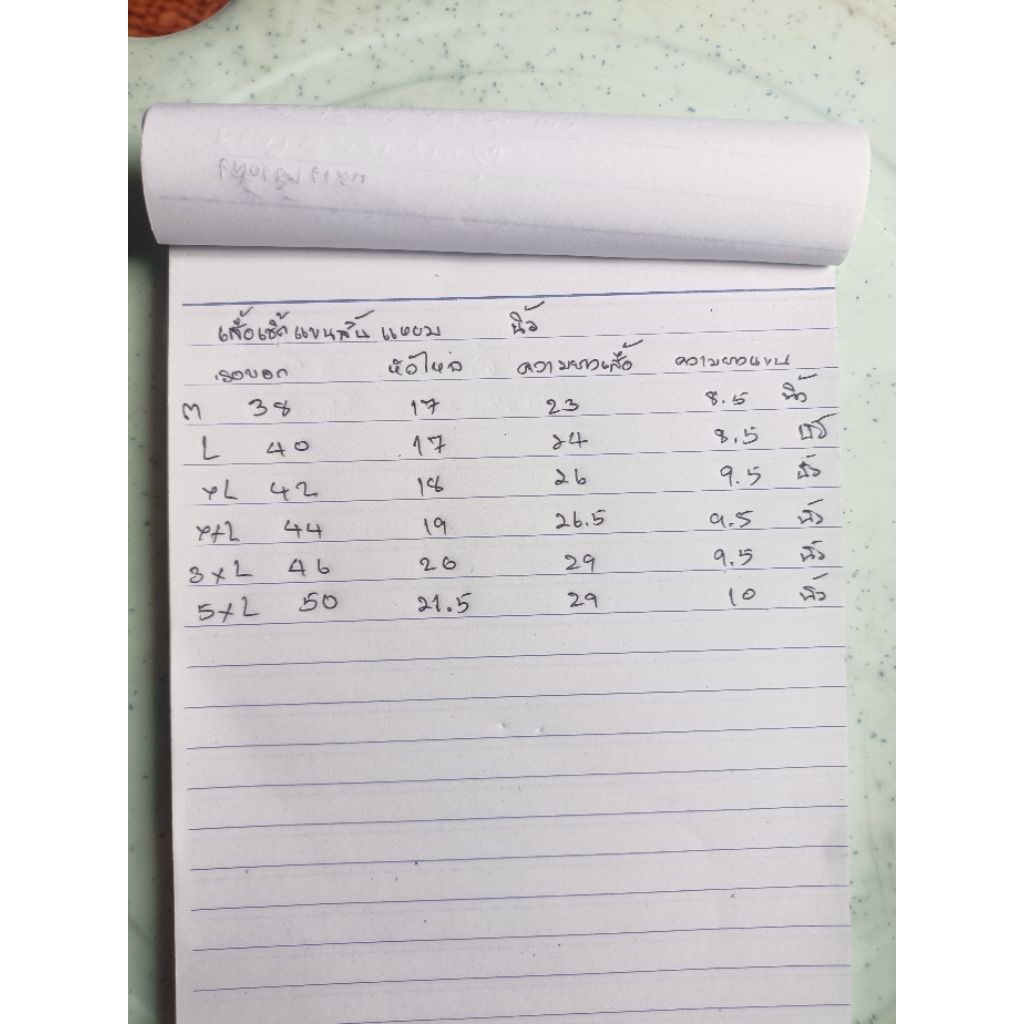 เสื้อเชิ้ตแขนสั้น แหยม นิ้ว
รอบอก หัวไหล่ ความยาวเสื้อ ความยาวแขน
M 38 17 23 8.5 นิ้ว
L 40 17 24 8.5 นิ้ว
XL 42 18 26 9.5 นิ้ว
XXL 44 19 26.5 9.5 นิ้ว
3XL 46 20 29 9.5 นิ้ว
5XL 50 21.5 29 10 นิ้ว